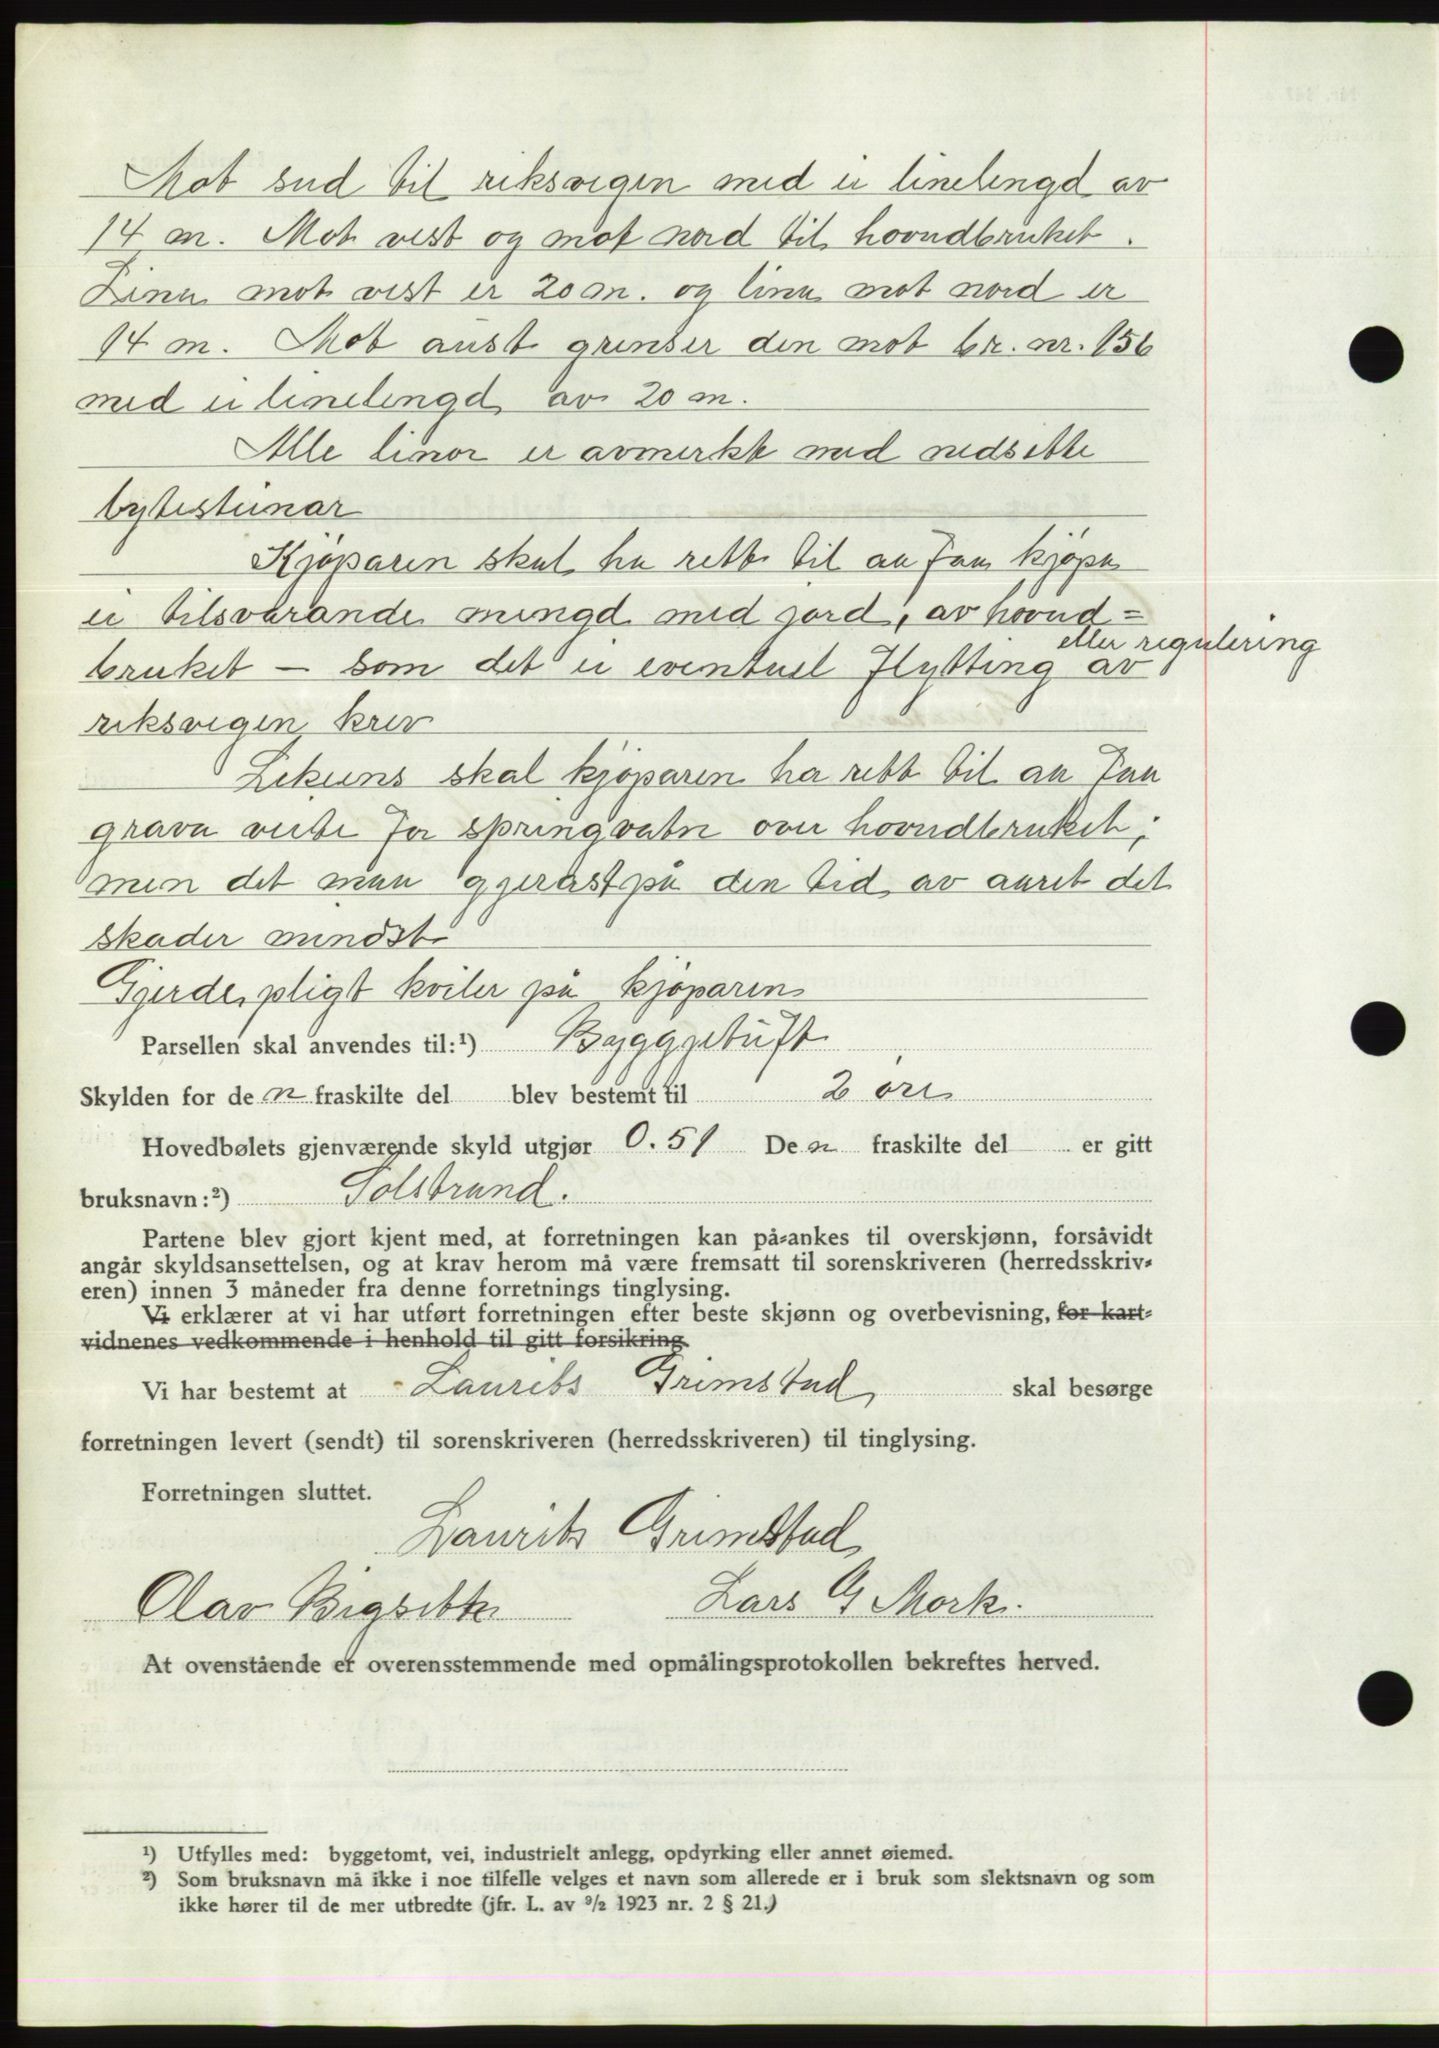 Mot sud til riksvegen med ei linelengd av
14 m. Mot vest og mot nord til hovudbruket.
Lina mot vest er 20 m. og lina mot nord er
14 m. Mot aust grenser den mot br. nr. 156
med ei linelengd av 20 m.
Alle linor er avmerkt med nedsette
bytesteinar
Kjøparen skal ha rett til aa faa kjøpa
ei tilsvarande mengd med jord, av hovud=
eller regulering
bruket – som det ei eventuel flytting av
riksvegen krev
Lekeens skal kjøparen ha rett til aa faa
grava veite for springvatn over hovudbruket;
men det maa gjerast på den tid av aaret det
skader mindst
Gjerdepligt kviler på kjøparen
Parsellen skal anvendes til:¹) Byggjetuft
Skylden for de n fraskilte del blev bestemt til 2 øre
Hovedbølets gjenværende skyld utgjør 0.51 De n fraskilte del er gitt
bruksnavn:²) Solstrand.
Partene blev gjort kjent med, at forretningen kan på-ankes til overskjønn, forsåvidt
angår skyldsansettelsen, og at krav herom må være fremsatt til sorenskriveren (herredsskriv-
eren) innen 3 måneder fra denne forretnings tinglysing.
Vi erklærer at vi har utført forretningen efter beste skjønn og overbevisning, for kart-
vidnenes vedkommende i henhold til gitt forsikring.
Vi har bestemt at Laurits Grimstad skal besørge
forretningen levert (sendt) til sorenskriveren (herredsskriveren) til tinglysing.
Forretningen sluttet.
Laurits Grimstad
Olav Bigsette Lars G Mork.
At ovenstående er overensstemmende med opmålingsprotokollen bekreftes herved.
¹) Utfylles med: byggetomt, vei, industrielt anlegg, opdyrking eller annet øiemed.
²) Som bruksnavn må ikke i noe tilfelle velges et navn som allerede er i bruk som slektsnavn og som
ikke hører til de mer utbredte (jfr. L. av ⁹/₂ 1923 nr. 2 § 21.)